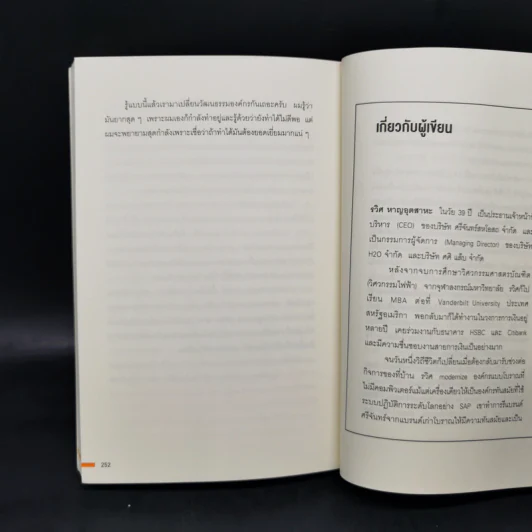 รู้แบบนี้แล้วเรามาเปลี่ยนวัฒนธรรมองค์กรกันเถอะครับ ผมรู้ว่า
มันยากสุด ๆ เพราะผมเองก็กำลังทำอยู่และรู้ด้วยว่ายังทำได้ไม่ดีพอ แต่
ผมจะพยายามสุดกำลังเพราะเชื่อว่าถ้าทำได้มันต้องยอดเยี่ยมมากแน่ ๆ
252
เกี่ยวกับผู้เขียน
รวิศ หาญอุตสาหะ ในวัย 39 ปี เป็นประธานเจ้าหน้าที่
บริหาร (CEO) ของบริษัท ศรีจันทร์สหโอสถ จำกัด และ
เป็นกรรมการผู้จัดการ (Managing Director) ของบริษัท
H2O จำกัด และบริษัท คศิ แล็บ จำกัด
หลังจากจบการศึกษาวิศวกรรมศาสตรบัณฑิต
(วิศวกรรมไฟฟ้า) จากจุฬาลงกรณ์มหาวิทยาลัย รวิศก็ไป
เรียน MBA ต่อที่ Vanderbilt University ประเทศ
สหรัฐอเมริกา พอกลับมาก็ได้ทำงานในวงการการเงินอยู่
หลายปี เคยร่วมงานกับธนาคาร HSBC และ Citibank
และมีความชื่นชอบงานสายการเงินเป็นอย่างมาก
จนวันหนึ่งวิถีชีวิตก็เปลี่ยนเมื่อต้องกลับมารับช่วงต่อ
กิจการของที่บ้าน รวิศ modernize องค์กรแบบโบราณที่
ไม่มีคอมพิวเตอร์แม้แต่เครื่องเดียวให้เป็นองค์กรทันสมัยที่ใช้
ระบบปฏิบัติการระดับโลกอย่าง SAP เขาทำการรีแบรนด์
ศรีจันทร์จากแบรนด์เก่าโบราณให้มีความทันสมัยและเป็น